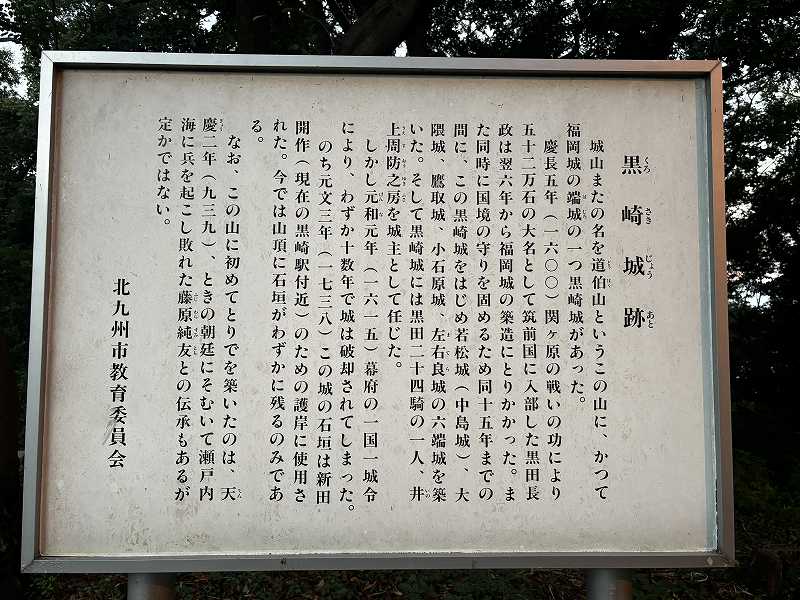 黒崎城跡
城山またの名を道伯山というこの山に、かつて
福岡城の端城の一つ黒崎城があった。
慶長五年（一六〇〇）関ヶ原の戦いの功により
五十二万石の大名として筑前国に入部した黒田長
政は翌六年から福岡城の築造にとりかかった。ま
た同時に国境の守りを固めるため同十五年までの
間に、この黒崎城をはじめ若松城（中島城）、大
隈城、鷹取城、小石原城、左右良城の六端城を築
いた。そして黒崎城には黒田二十四騎の一人、井
上周防之房を城主として任じた。
しかし元和元年（一六一五）幕府の一国一城令
により、わずか十数年で城は破却されてしまった。
のち元文三年（一七三八）この城の石垣は新田
開作（現在の黒崎駅付近）のための護岸に使用さ
れた。今では山頂に石垣がわずかに残るのみであ
る。
なお、この山に初めてとりでを築いたのは、天
慶二年（九三九）、ときの朝廷にそむいて瀬戸内
海に兵を起こし敗れた藤原純友との伝承もあるが
定かではない。
北九州市教育委員会